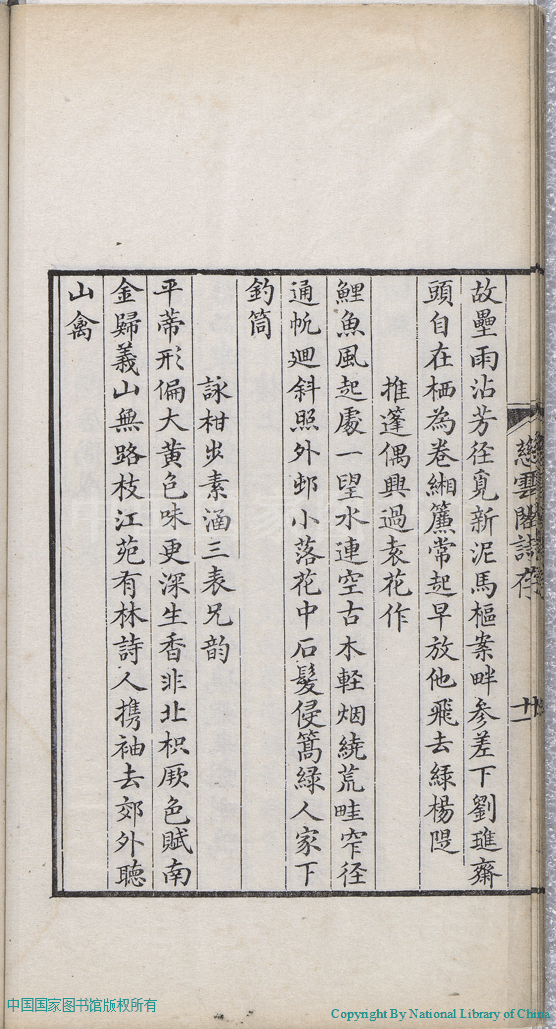 故壘雨沾芳徑覓新泥馬樞案畔參差下劉璡齋
頭自在栖為卷緗簾常起早放他飛去綠楊隄
推篷偶興過袁花作
鯉魚風起處一望水連空古木輕烟繞荒畦窄徑
通帆迴斜照外邨小落花中石髮侵篙綠人家下
釣筒
詠柑出素涵三表兄韵
平蒂形偏大黃色味更深生香非北枳厥色賦南
金歸義山無路枝江苑有林詩人携袖去郊外聽
山禽
慈雲閣詩存
廿一
中国国家图书馆版权所有
Copyright By National Library of China